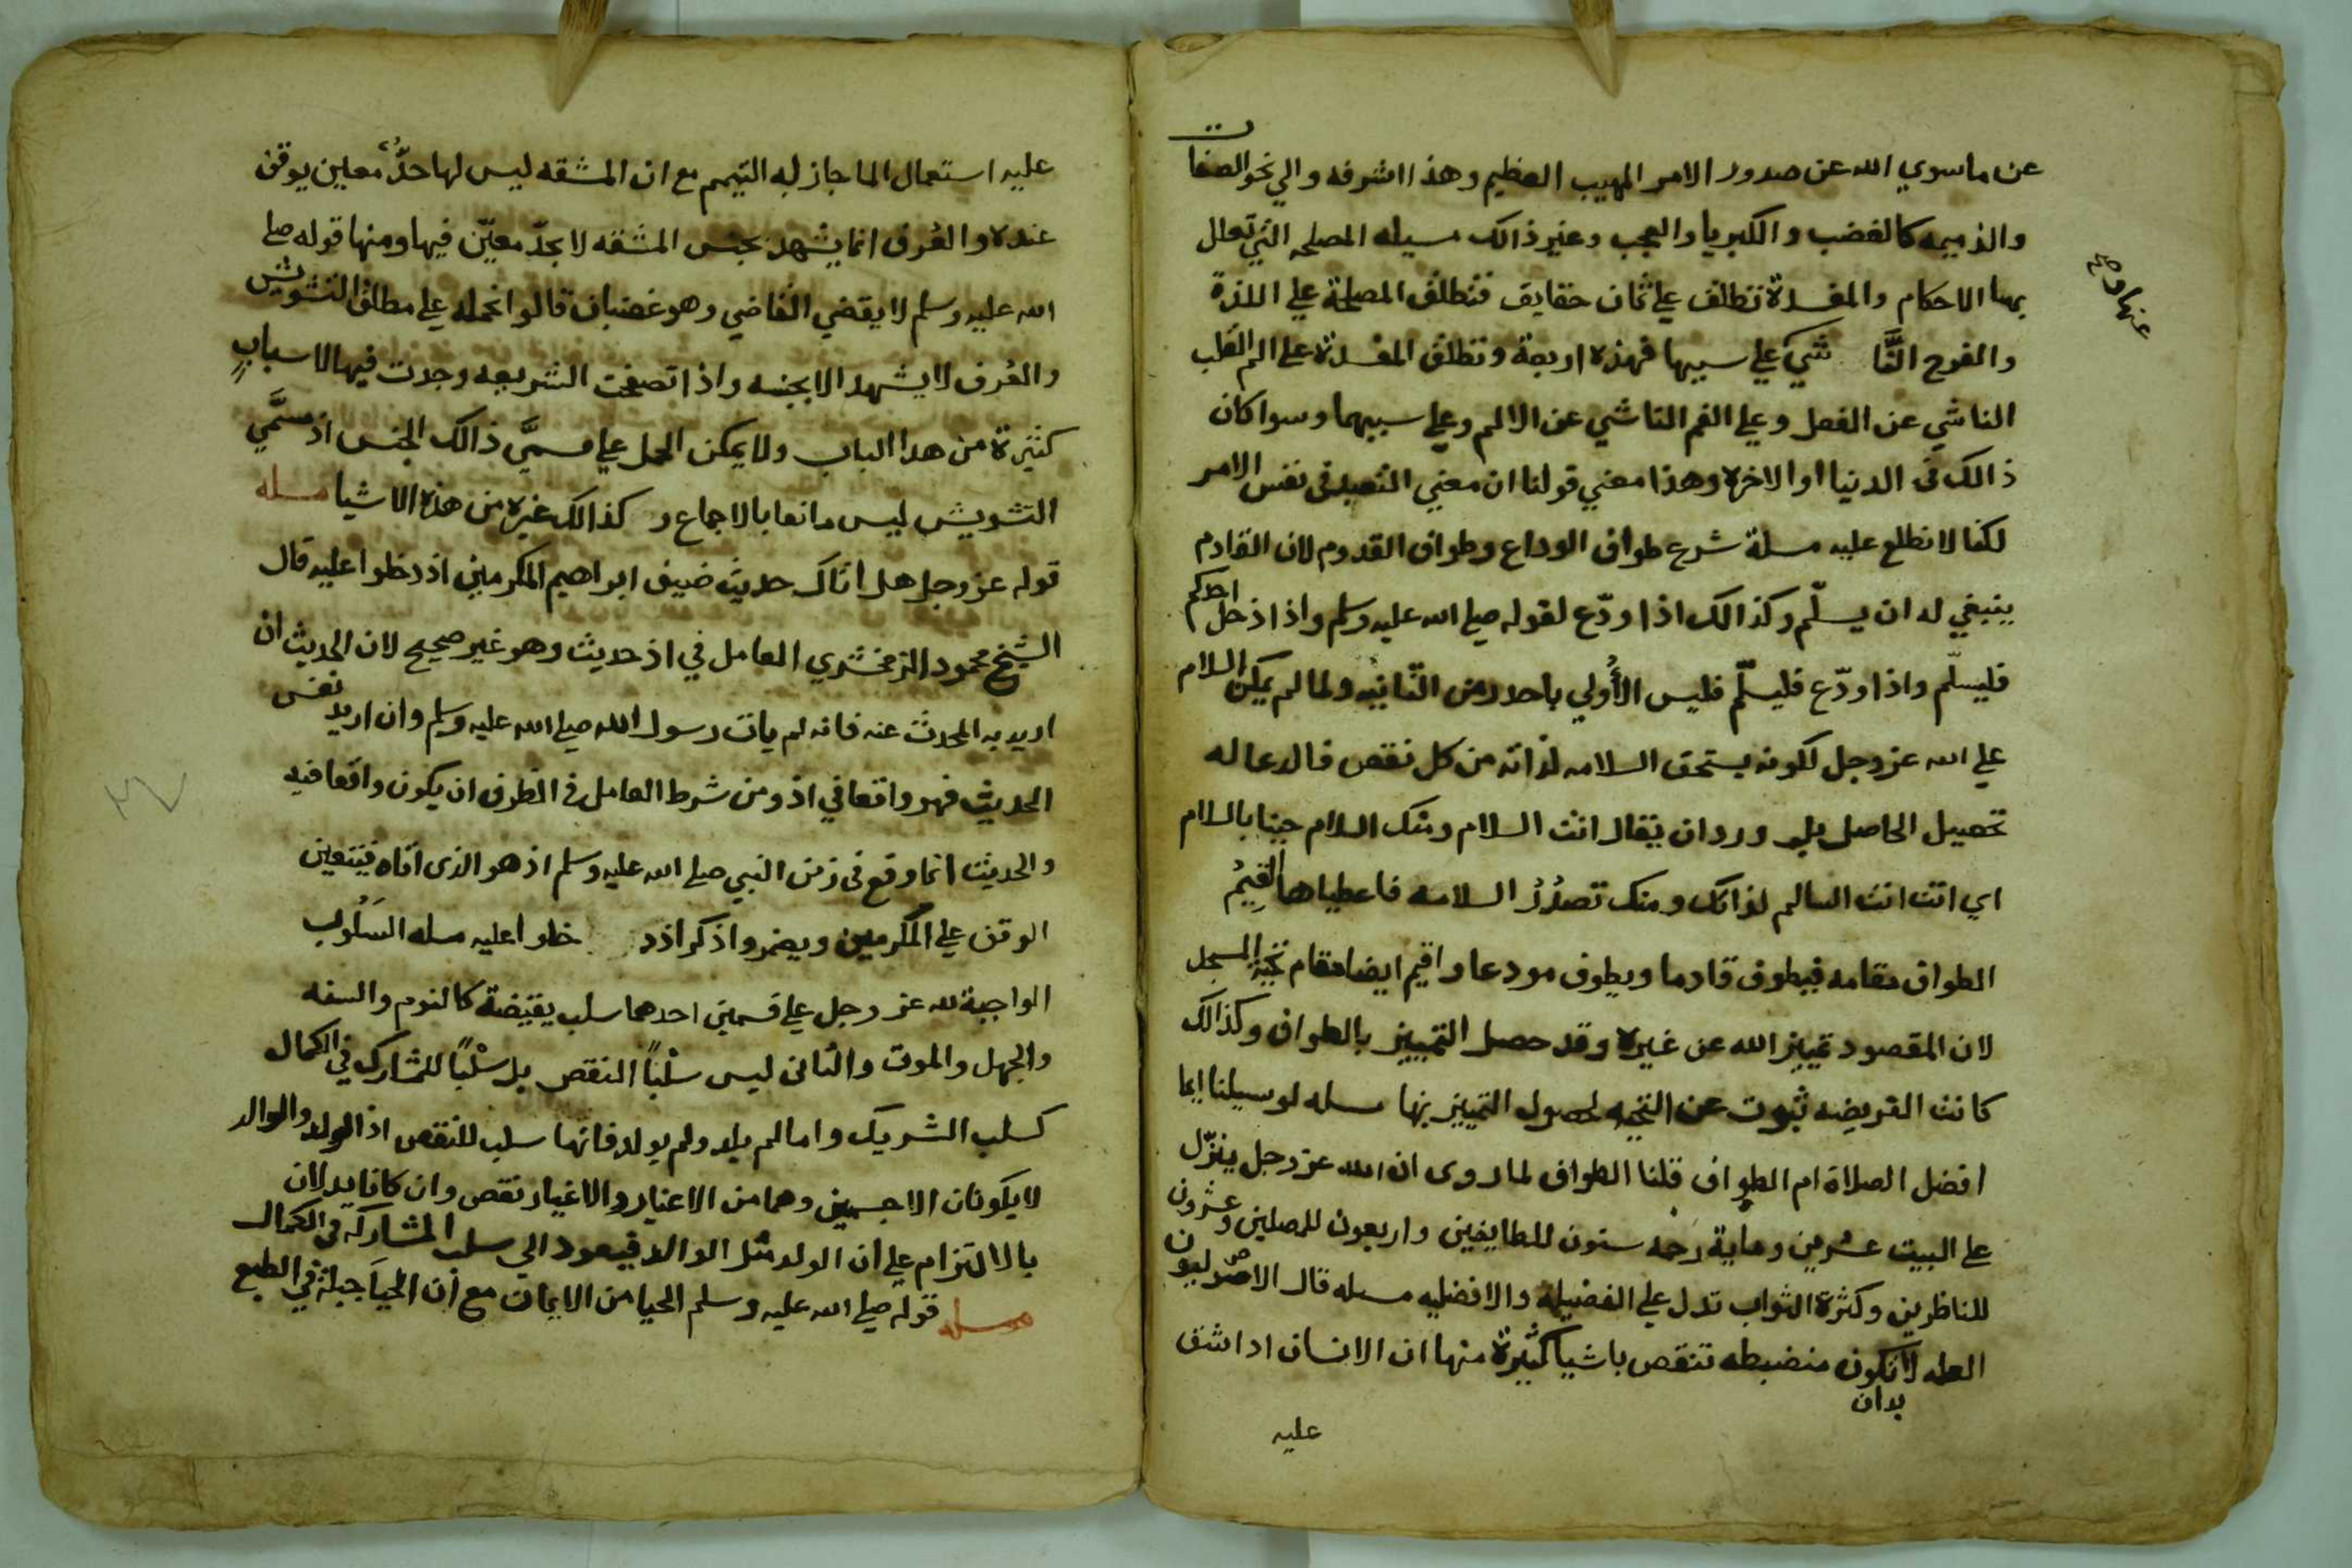 عن ما سوي الله عن صدور الامر المهيب العظيم وهذا اشرفه والي نحو الصفات
والذميمه كالغضب والكبريا والعجب وغير ذالك مسيله المصلحه التي تعلل
بها الاحكام والمفسدة تطلق علي ثمان حقايق فتطلق المصلحة علي اللذة
والفرح النَّا شي علي سببها فهذه اربعة وتطلق المفسدة علي الم القلب
الناشي عن الفعل وعلي الغم الناشي عن الالم وعلي سببهما وسوا كان
ذالك في الدنيا او الاخره وهذا معني قولنا ان معني التعبد في نفس الامر
لكنا لا نطلع عليه مسلة شرع طواف الوداع وطواف القدوم لان القادم
ينبغي له ان يسلّم وكذالك اذا ودّع لقوله صلي الله عليه وسلم واذا دخل احدكم
فليسلّم واذا ودّع فليسلّم فليس الأُولي باحدر من الثّانيه ولما لم يمكن السلام
علي الله عز وجل لكونه يستحق السلامه لذاته من كل نقص فالدعا له
تحصيل الحاصل بل ورد ان يقال انت السلام ومنك السلام حينا بالسلام
اي انت انت السالم لذاتك ومنك تصدُرُ السلامه فاعطياها أُقِيمُ
الطواف مقامه فيطوف قادما ويطوف مودعا واقيم ايضا مقام تحية المسجد
لان المقصود تمييز الله عن غيره وقد حصل التمييز بالطواف وكذالك
كانت الفريضه ثبوت عن التحيه لحصول التمييز بها مسله لو سيلنا ايما
افضل الصلاة ام الطواف قلنا الطواف لما روي ان الله عز وجل ينزّل
علي البيت عشرين وماية رَحمه ستون للطايفين واربعون للمصلين وعشرون
للناظرين وكثرة الثواب تدل علي الفضيلة والافضليه مسله قال الاصوليون
العله لا تكون منضبطه تنقص باشيا كثيرة منها ان الانسان اذا شق
بدان
عليه
عنها وح
عليه استعمال الما جاز له التيمم مع ان المشقه ليس لها حدٌّ معين يوقف
عنده والعُرف انما يشهد بجنس المشقه لا بحدّ معيّن فيها ومنها قوله صلي
الله عليه وسلم لا يقضي القاضي وهو غضبان قالوا نحمله علي مطلق التشويش
والعُرف لا يشهد الا بجنسه واذا تصفحت الشريعه وجدت فيها الاسباب
كثيرة من هدا الباب ولا يمكن الحمل علي مسمَّي ذالك الجنس اذ مسَمَّي
التشويش ليس مانعا بالاجماع و كذالك غيره من هذه الاشيا مسله
قوله عز وجل هل اتاك حديث ضيف ابراهيم المكرمين اذ دخلوا عليه قال
الشيخ محمود الزمخشري العامل في اذ حديث وهو غير صحيح لان الحديث ان
اريد به المحدث عنه فانه لم يات رسول الله صلي الله عليه وسلم وان اريد نفس
الحديث فهو واقعا في اذ ومن شرط العامل في الظرف ان يكون واقعا فيه
والحديث انما وقع في زمن النبي صلي الله عليه وسلم اذ هو الذي اتاه فيتعين
الوقف علي المكرمين ويضمر واذكر اذد خلوا عليه مسله السَلُوب
الواجبة لله عز وجل علي قسمين احدهما سلب يقيضة كالنوم والسفه
والجهل والموت والثاني ليس سلْبًا النقص بل سلْبًا للمشارك في الكمال
كسلب الشريك واما لم يلد ولم يولد فانها سلب للنقص اذ الولد والوالد
لا يكونان الا جسمين وهما من الاغيار والاغيار نقص وان كانا يدلان
بالالتزام علي ان الولد مثل الوالد فيعود الي سلب المشاركه في الكمال
مسله قوله صلي الله عليه وسلم الحيا من الايمان مع ان الحيآ جبلة في الطبع